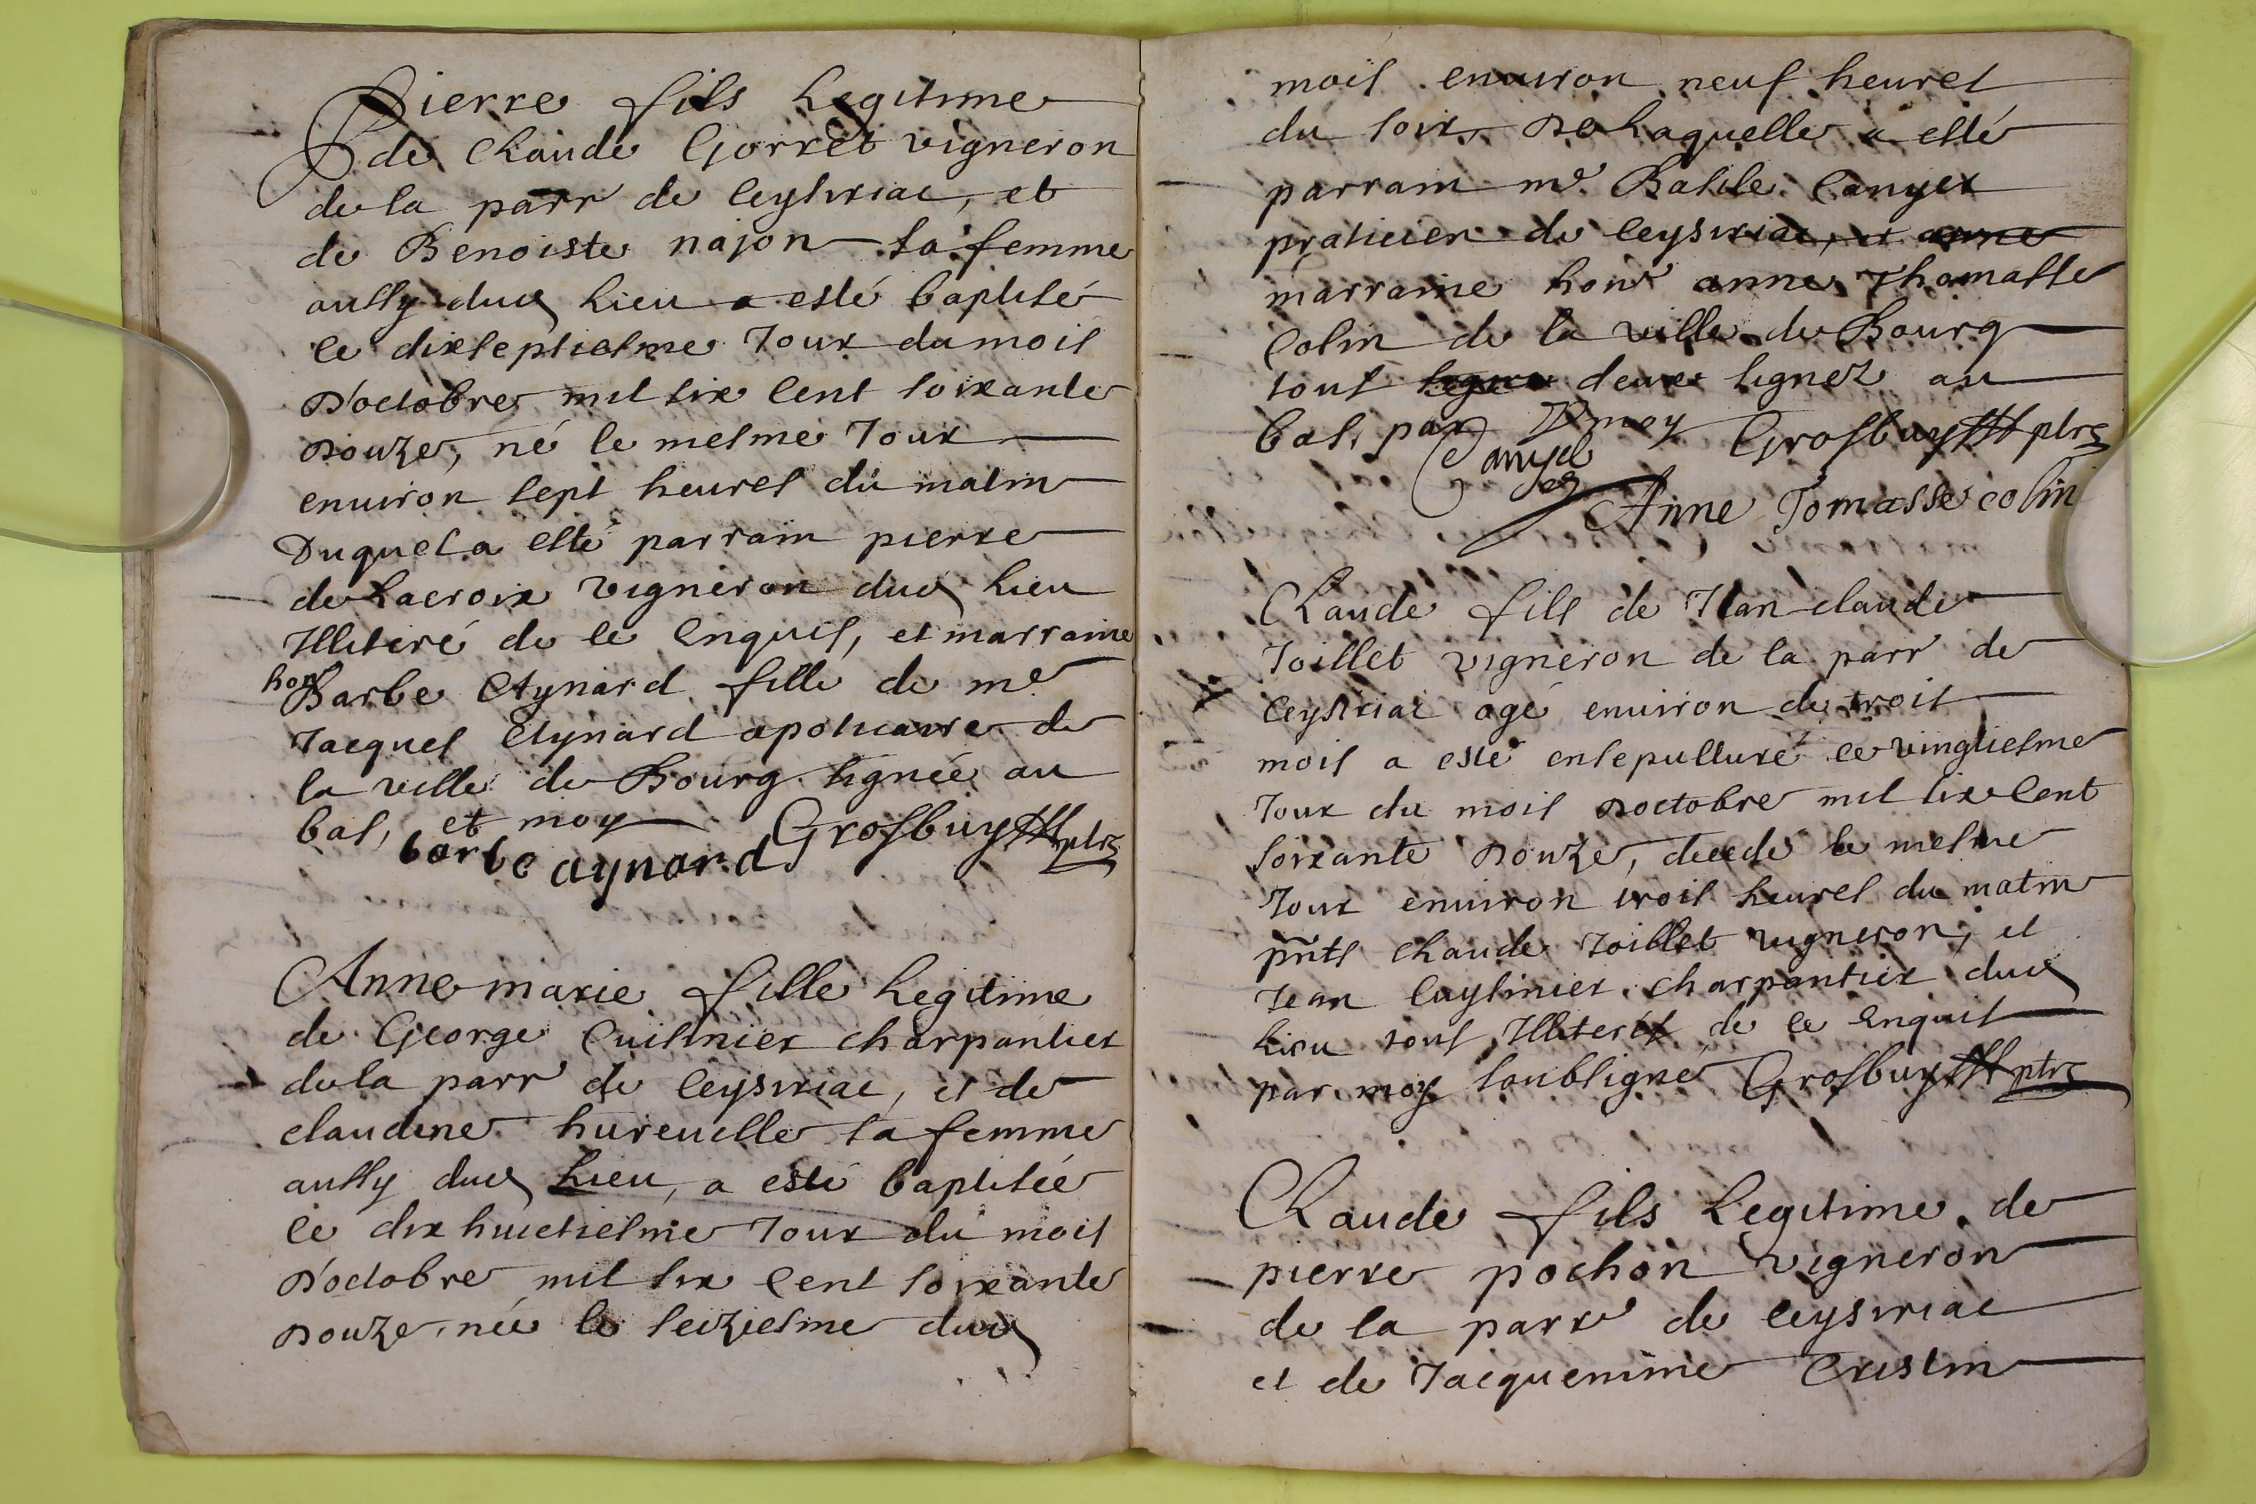 Pierre fils Legitime
de Claude Gorret vigneron
de la parr de Ceysiriac, et
de Benoiste najon sa femme
aussy dud Lieu a esté baptisé
le dixseptiesme Jour du mois
D'octobre mil six Cent soixante
Douze, né le mesme Jour
environ sept heures du matin
Duquel a esté parrain pierre
de Lacroix vigneron dud Lieu
Illiteré de ce Enquis, et marraine
hon Barbe Aynard fille de me
Jacques Aynard apoticaire de
la ville de Bourg signée au
bas, et moy Grosbuy ptre
barbe aynard
Anne marie fille Legitime
de George Cuisinier charpantier
de la parr de Ceysiriac, et de
claudine hureuelle sa femme
aussy dud Lieu, a esté baptisée
le dix huictiesme Jour du mois
D'octobre mil six Cent soixante
Douze, née le seiziesme dud
mois environ neuf heures
du soir, De Laquelle a esté
parrain me Basile Canyer
praticien de Ceysiriac, et anne
marraine hon anne Thomasse
Colin de la ville de Bourg
tous signe deux signez au
bas, par moy Grosbuy ptre
Canyer
Anne Tomasse colin
Claude fils de Jean claude
Joillet vigneron de la parr de
Ceysiriac agé environ de trois
mois a esté ensepulturé le vingtiesme
Jour du mois Doctobre mil six Cent
soixante Douze, decedé le mesme
Jour environ trois heures du matin
pnts Claude Joillet vigneron, et
Jean Cuysinier charpantier dud
Lieu tous Illiteréz de ce Enquis
par moy soubsigné Grosbuy ptre
Claude fils Legitime de
pierre pochon vigneron
de la parr de Ceysiriac
et de Jacquemine Cristin